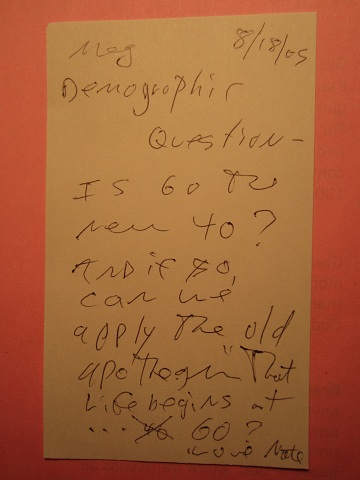 Meg 8/18/05
Demographic
Question -
Is 60 the
new 40?
And if so,
can we
apply the old
apothegm "That
Life begins at
... 60?
Note